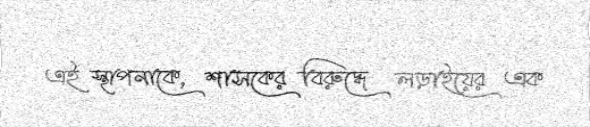 এই স্থাপনাকে, শাসকের বিরুদ্ধে লড়াইয়ের এক